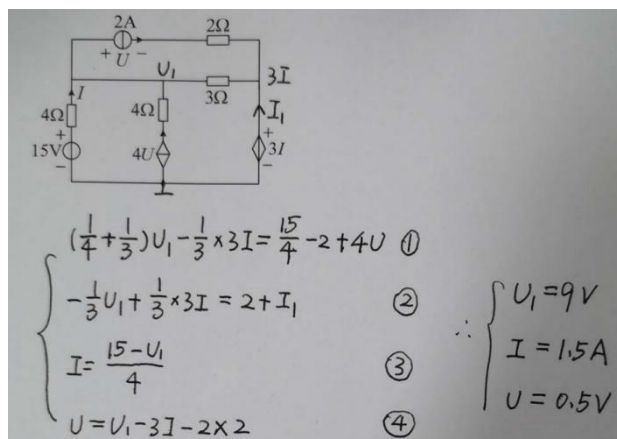 2A
2Ω
+ U −
U₁
3I
I
3Ω
4Ω
4Ω
I₁
+
+
15V
4U
3I
−
−
(1/4 + 1/3)U₁ − 1/3 × 3I = 15/4 − 2 + 4U ①
−1/3 U₁ + 1/3 × 3I = 2 + I₁ ②
I = (15 − U₁)/4 ③
U = U₁ − 3I − 2×2 ④
∴ { U₁ = 9V
I = 1.5A
U = 0.5V